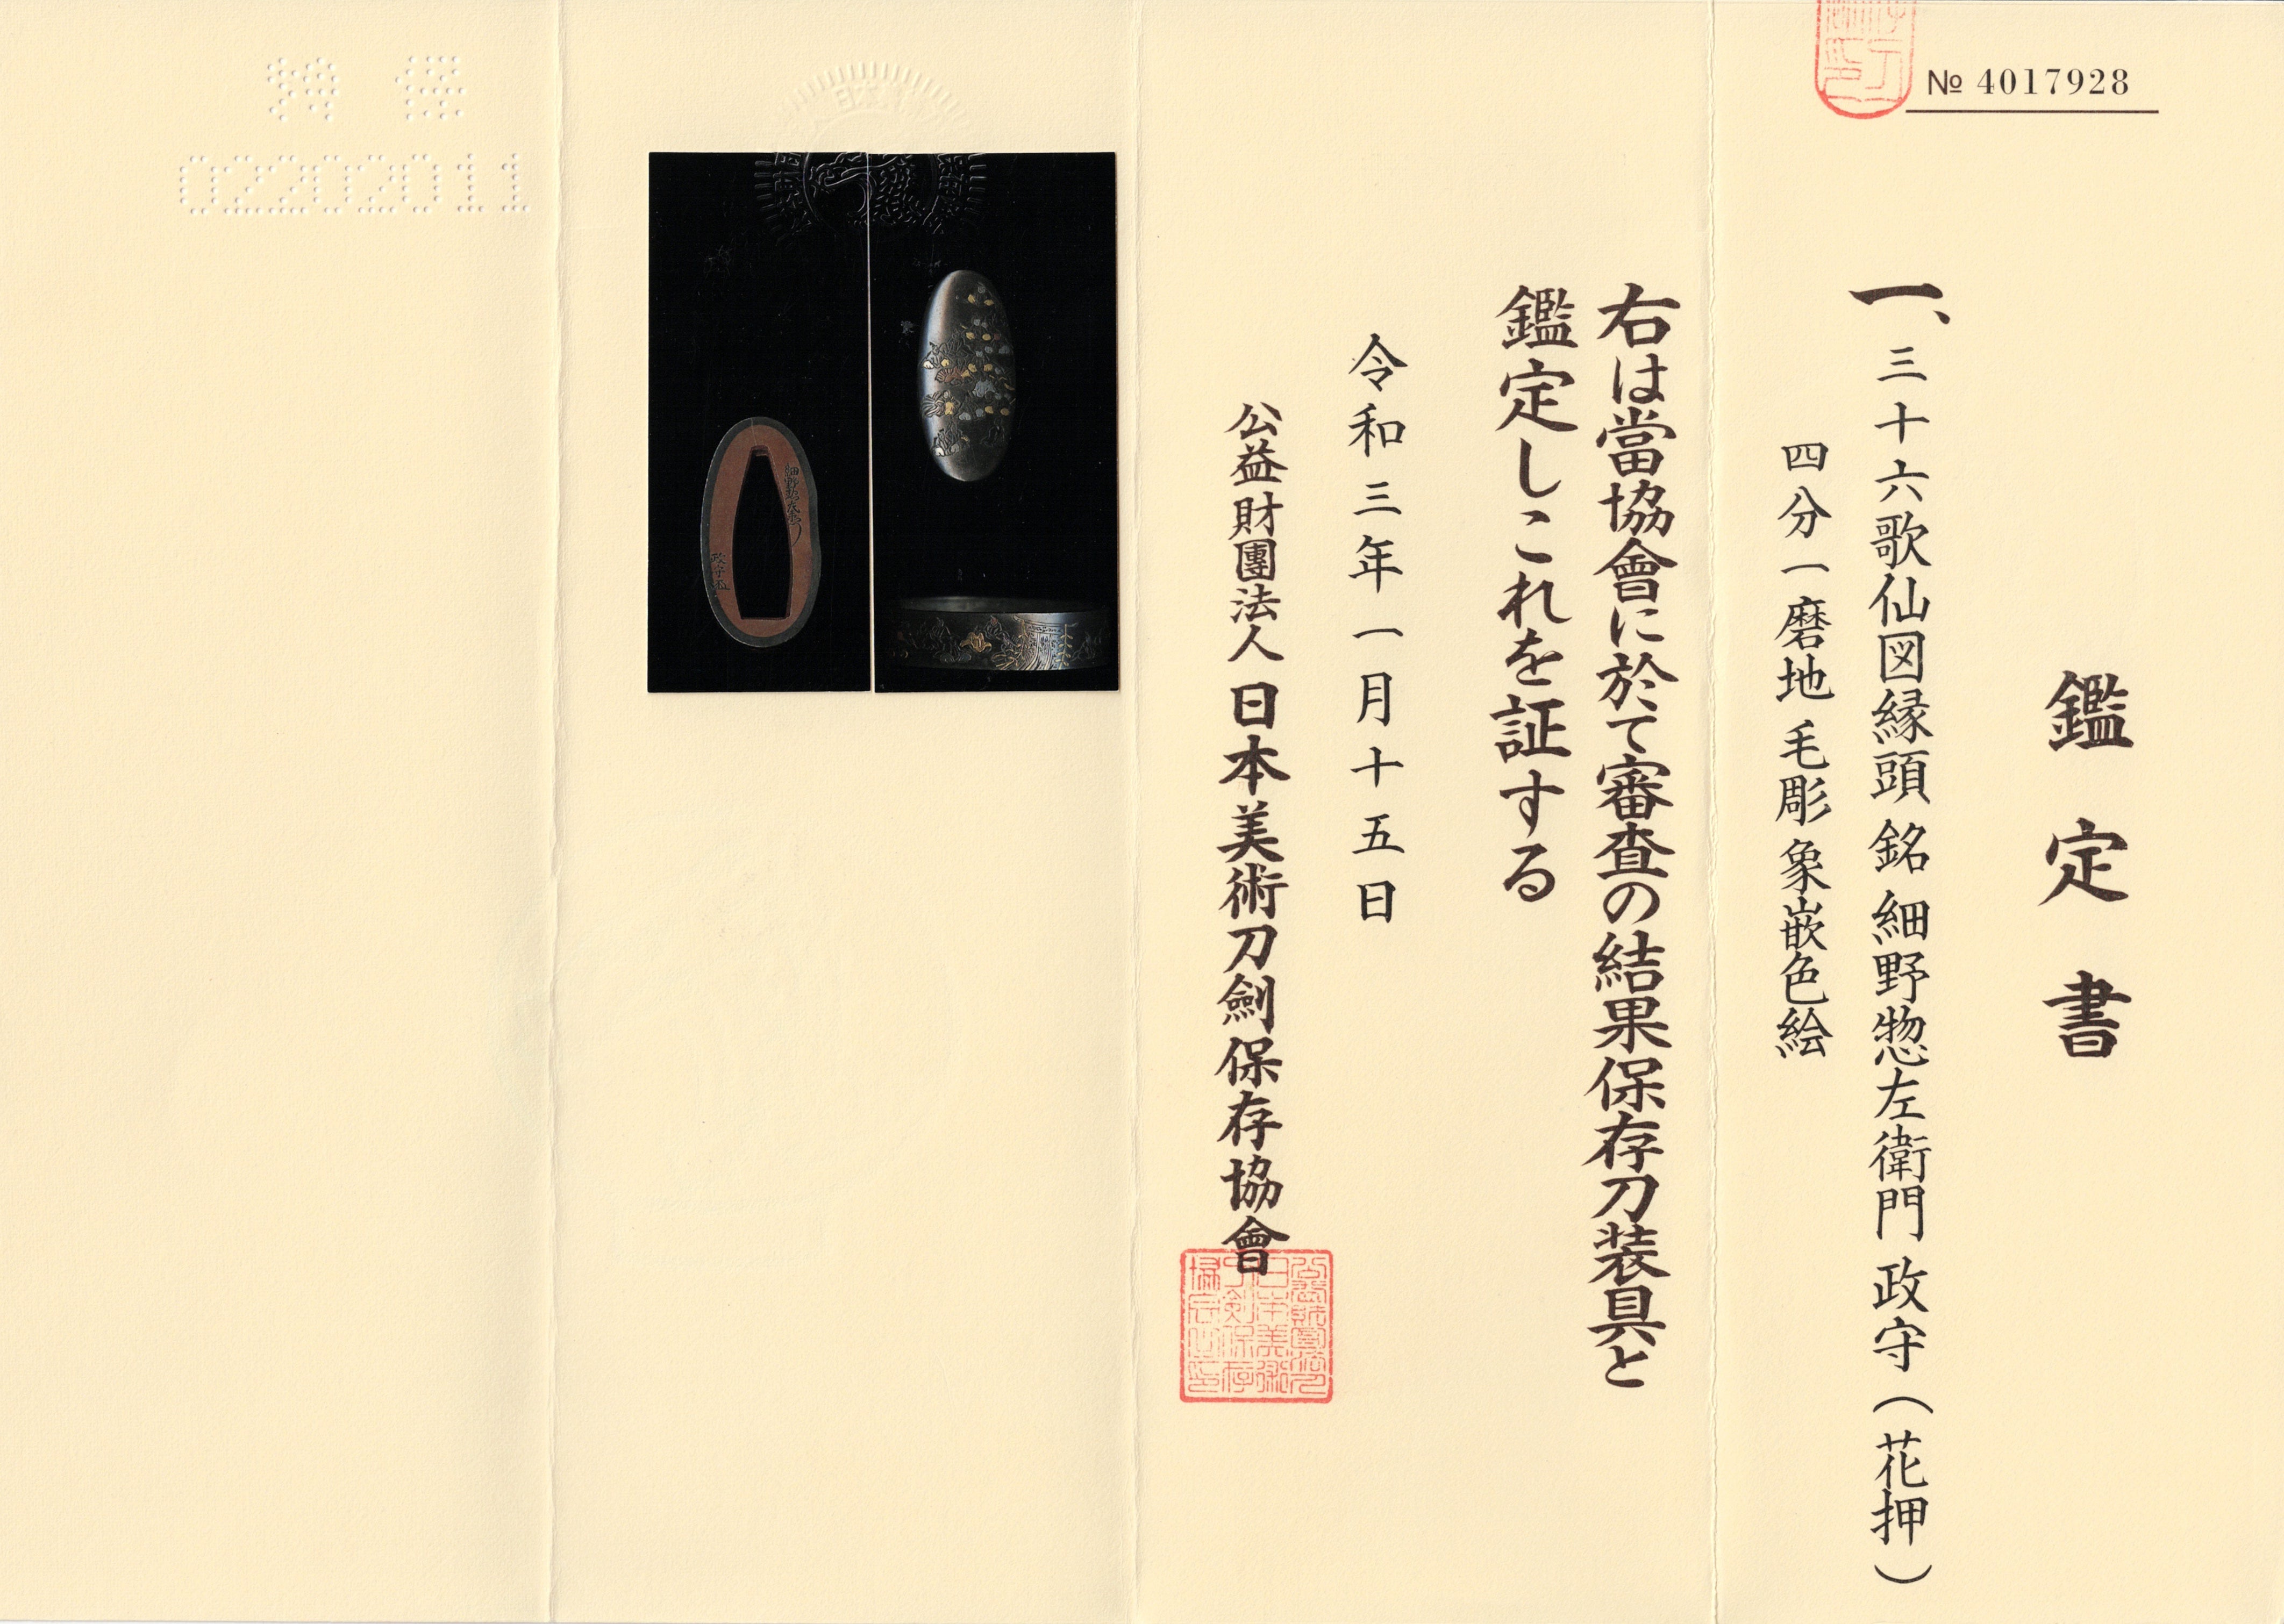 № 4017928
鑑定書
一、三十六歌仙図縁頭 銘 細野惣左衛門 政守(花押)
四分一磨地 毛彫 象嵌色絵
右は當協會に於て審査の結果保存刀装具と
鑑定しこれを証する
令和三年一月十五日
公益財團法人 日本美術刀劍保存協會
保 刀
02202011
細野惣左衛門
政守